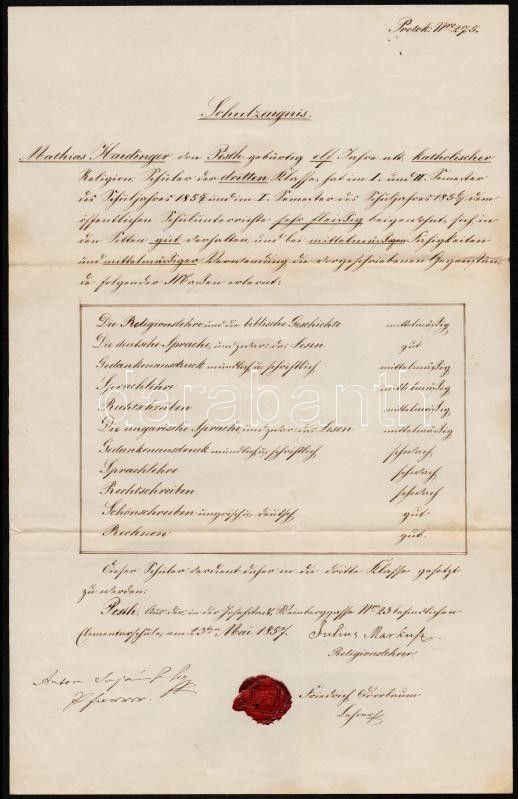 Protok: Nro 275.
Schulzeugnis.
Mathias Haidinger von Pesth gebürtig elf Jahre alt katholischer
Religion, Schüler der dritten Klasse, hat im I. und II. Semester
des Schuljahres 185 und im I. Semester des Schuljahres 185 dem
öffentlichen Schulunterrichte sehr fleißig beigewohnt, sich in
den Sitten gut verhalten, und bei mittelmäßigen Fähigkeiten
und mittelmäßiger Verwendung die vorgeschriebenen Gegenstän-
de folgender Maßen erlernt:
Die Religionslehre und die biblische Geschichte mittelmäßig
Die deutsche Sprache, und zwar: das Lesen gut
Gedankenausdruck mündlich u: schriftlich mittelmäßig
Sprachlehre mittelmäßig
Rechtschreiben mittelmäßig
Die ungarische Sprache und zwar: das Lesen mittelmäßig
Gedankenausdruck mündlich u: schriftlich schwach
Sprachlehre schwach
Rechtschreiben schwach
Schönschreiben ungrisch u: deutsch gut
Rechnen gut.
darabanth
Dieser Schüler verdient daher in die dritte Klasse gesetzt
zu werden:
Pesth. Aus der, in der Josefstadt, Weinberggasse Nro 23 befindlichen
Elementarschule, am 23ten Mai 1857. Julius
Religionslehrer
Anton
Pfarrer
Friedrich
Lehrer